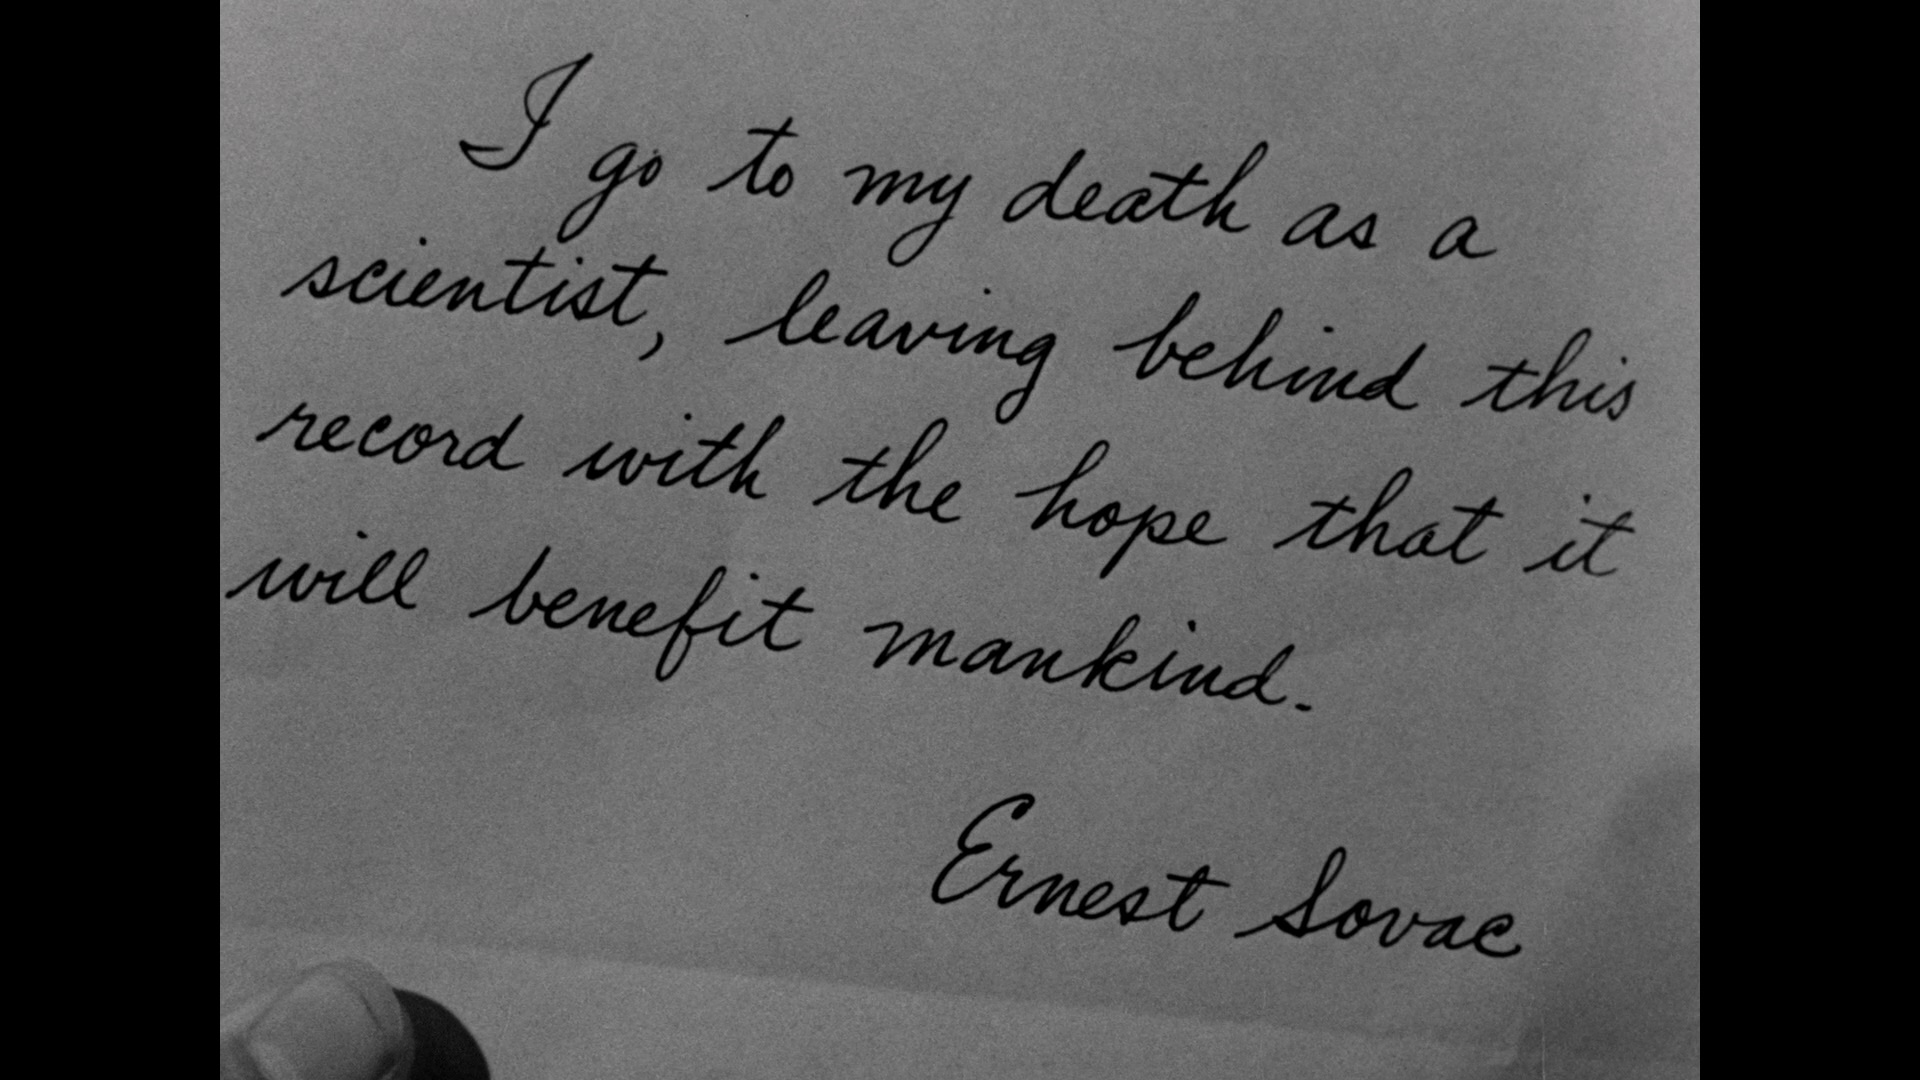 I go to my death as a
scientist, leaving behind this
record with the hope that it
will benefit mankind.
Ernest Sovac